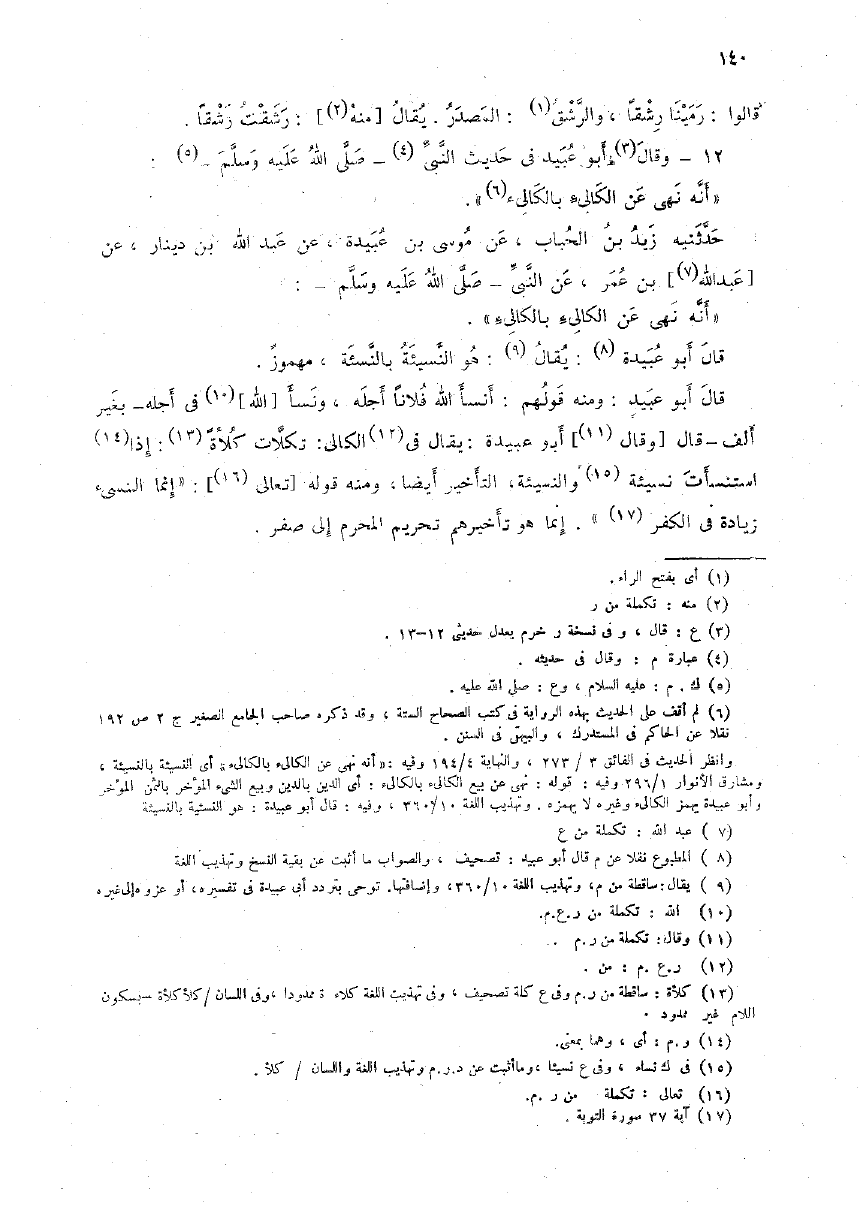 ١٤٠
قالوا : رَمَيْنَا رِشْقاً ، والرَّشْقُ (١) : المَصدَرُ . يُقالُ [منهُ (٢)] : رَشَقْتُ رَشْقاً .
١٢ – وقالَ (٣) أبو عُبَيد فى حَديث النَّبىِّ (٤) – صَلَّى اللهُ عَلَيه وَسَلَّمَ – (٥) :
« أنَّه نَهى عَن الكَالىء بالكَالىء (٦) » .
حَدَّثَنيه زَيدُ بنُ الحُباب ، عَن مُوسى بن عُبَيدة ، عن عَبد الله بن دينار ، عن
[عَبدالله (٧)] بن عُمَر ، عَن النَّبىِّ – صَلَّى اللهُ عَلَيه وسَلَّم – :
« أنَّه نَهى عَن الكالىءِ بالكالِىءِ » .
قالَ أبو عُبَيدة (٨) : يُقالُ (٩) : هُو النَّسيئَةُ بالنَّسئَة ، مهموزُ .
قالَ أبو عبَيدٍ : ومنه قَولُهم : أنسأَ اللهُ فُلاناً أجلَه ، ونَسأَ [الله] (١٠) فى أجله – بغَير
ألف – قال [وقال (١١)] أبو عبيدة : يقال فى (١٢) الكالى : تكلَّات كُلْأةً (١٣) : إذا (١٤)
استنسأتَ نسيئة (١٥) والنسيئة ، التأخير أيضا ، ومنه قوله [تعالى (١٦)] : «إنما النسىء
زيادة فى الكفر (١٧) » . إنما هو تأخيرهم تحريم المحرم إلى صفر .
(١) أى بفتح الراء .
(٢) منه : تكملة من ر
(٣) ع : قال ، و فى نسخة ر خرم يعدل حديثى ١٢–١٣ .
(٤) عبارة م : وقال فى حديثه .
(٥) ك . م : عليه السلام ، وع : صلى الله عليه .
(٦) لم أقف على الحديث بهذه الرواية فى كتب الصحاح الستة ، وقد ذكره صاحب الجامع الصغير ج ٢ ص ١٩٢
نقلا عن الحاكم فى المستدرك ، والبيهقى فى السنن .
وانظر الحديث فى الفائق ٣ / ٢٧٣ ، والنهاية ١٩٤/٤ وفيه : «أنه نهى عن الكالىء بالكالىء» أى النسيئة بالنسيئة ،
ومشارق الأنوار ٢٩٦/١ وفيه : قوله : نهى عن بيع الكالىء بالكالىء : أى الدين بالدين وبيع الشىء المؤخر بالثمن المؤخر
وأبو عبيدة يهمز الكالىء وغيره لا يهمزه . وتهذيب اللغة ٣٦٠/١٠ ، وفيه : قال أبو عبيدة : هو النسئية بالنسيئة
(٧ ) عبد الله : تكملة من ع
(٨ ) المطبوع نقلا عن م قال أبو عبيد : تصحيف ، والصواب ما أثبت عن بقية النسخ وتهذيب اللغة
(٩ ) يقال : ساقطة من م، وتهذيب اللغة ٣٦٠/١٠ ، وإضافتها . توحى بتردد أبى عبيدة فى تفسيره ، أو عزوه إلى غيره
(١٠) الله : تكملة من ر.ع.م.
(١١) وقال : تكملة من ر.م .
(١٢) ر.ع .م : من .
(١٣) كلأة : ساقطة من ر.م وفى ع كلة تصحيف ، وفى تهذيب اللغة كلاءة ممدودا ، وفى اللسان /كلأ كلأة – بسكون
اللام غير ممدود .
(١٤) و.م : أى ، وهما بمعنى .
(١٥) فى ك نساء ، وفى ع نسيئا ، وما أثبت عن د.ر.م وتهذيب اللغة واللسان / كلأ .
(١٦) تعالى : تكملة من ر .م.
(١٧) آية ٣٧ سورة التوبة .